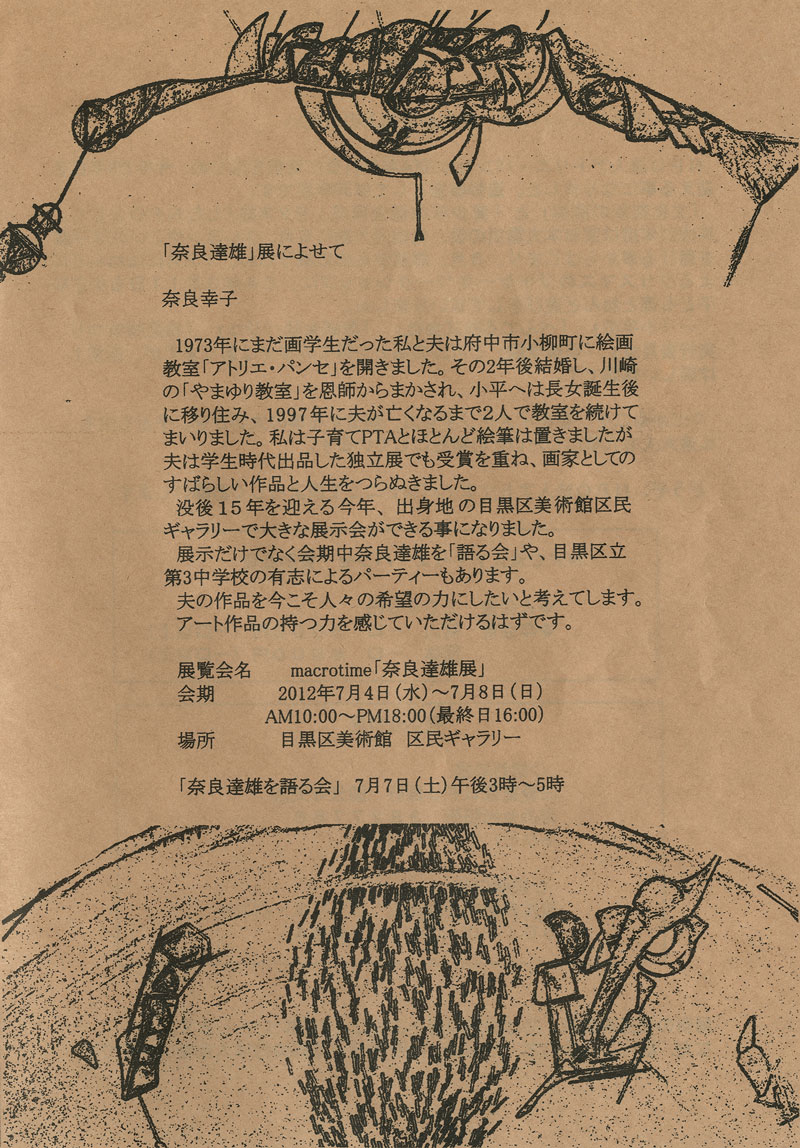 「奈良達雄」展によせて
奈良幸子
1973年にまだ画学生だった私と夫は府中市小柳町に絵画
教室「アトリエ・パンセ」を開きました。その2年後結婚し、川崎
の「やまゆり教室」を恩師からまかされ、小平へは長女誕生後
に移り住み、1997年に夫が亡くなるまで2人で教室を続けて
まいりました。私は子育てPTAとほとんど絵筆は置きましたが
夫は学生時代出品した独立展でも受賞を重ね、画家としての
すばらしい作品と人生をつらぬきました。
没後15年を迎える今年、出身地の目黒区美術館区民
ギャラリーで大きな展示会ができる事になりました。
展示だけでなく会期中奈良達雄を「語る会」や、目黒区立
第3中学校の有志によるパーティーもあります。
夫の作品を今こそ人々の希望の力にしたいと考えてします。
アート作品の持つ力を感じていただけるはずです。
展覧会名 macrotime「奈良達雄展」
会期 2012年7月4日(水)~7月8日(日)
AM10:00~PM18:00(最終日16:00)
場所 目黒区美術館 区民ギャラリー
「奈良達雄を語る会」 7月7日(土)午後3時~5時